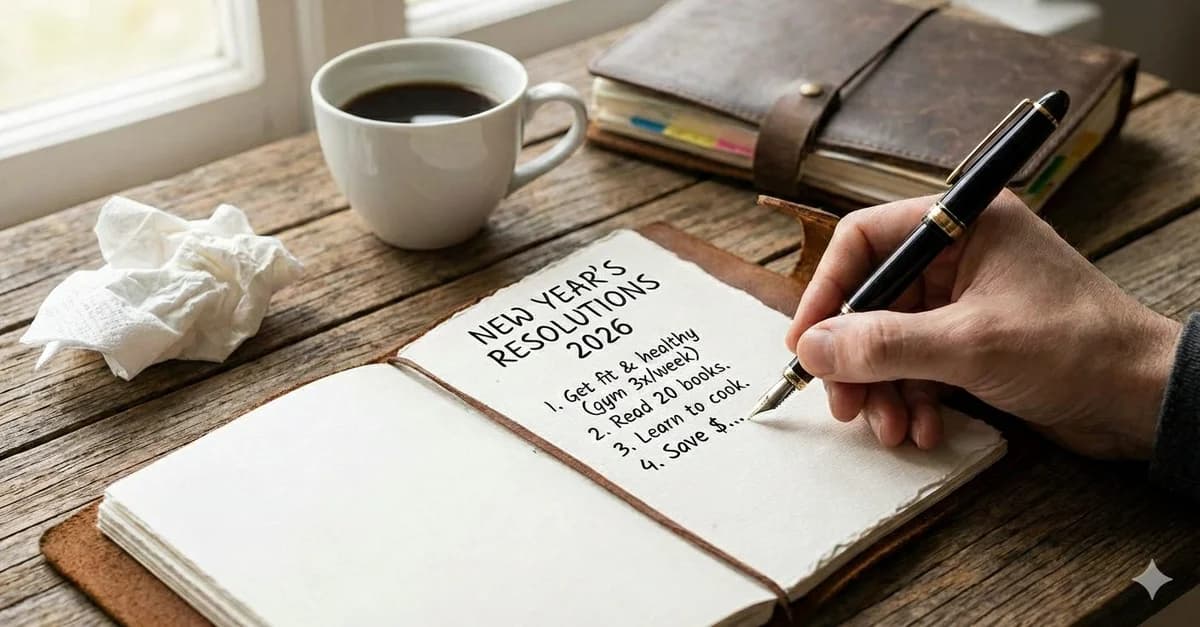 NEW YEAR'S
RESOLUTIONS
2026
1. Get fit & healthy
(gym 3x/week)
2. Read 20 books.
3. Learn to cook.
4. Save $...